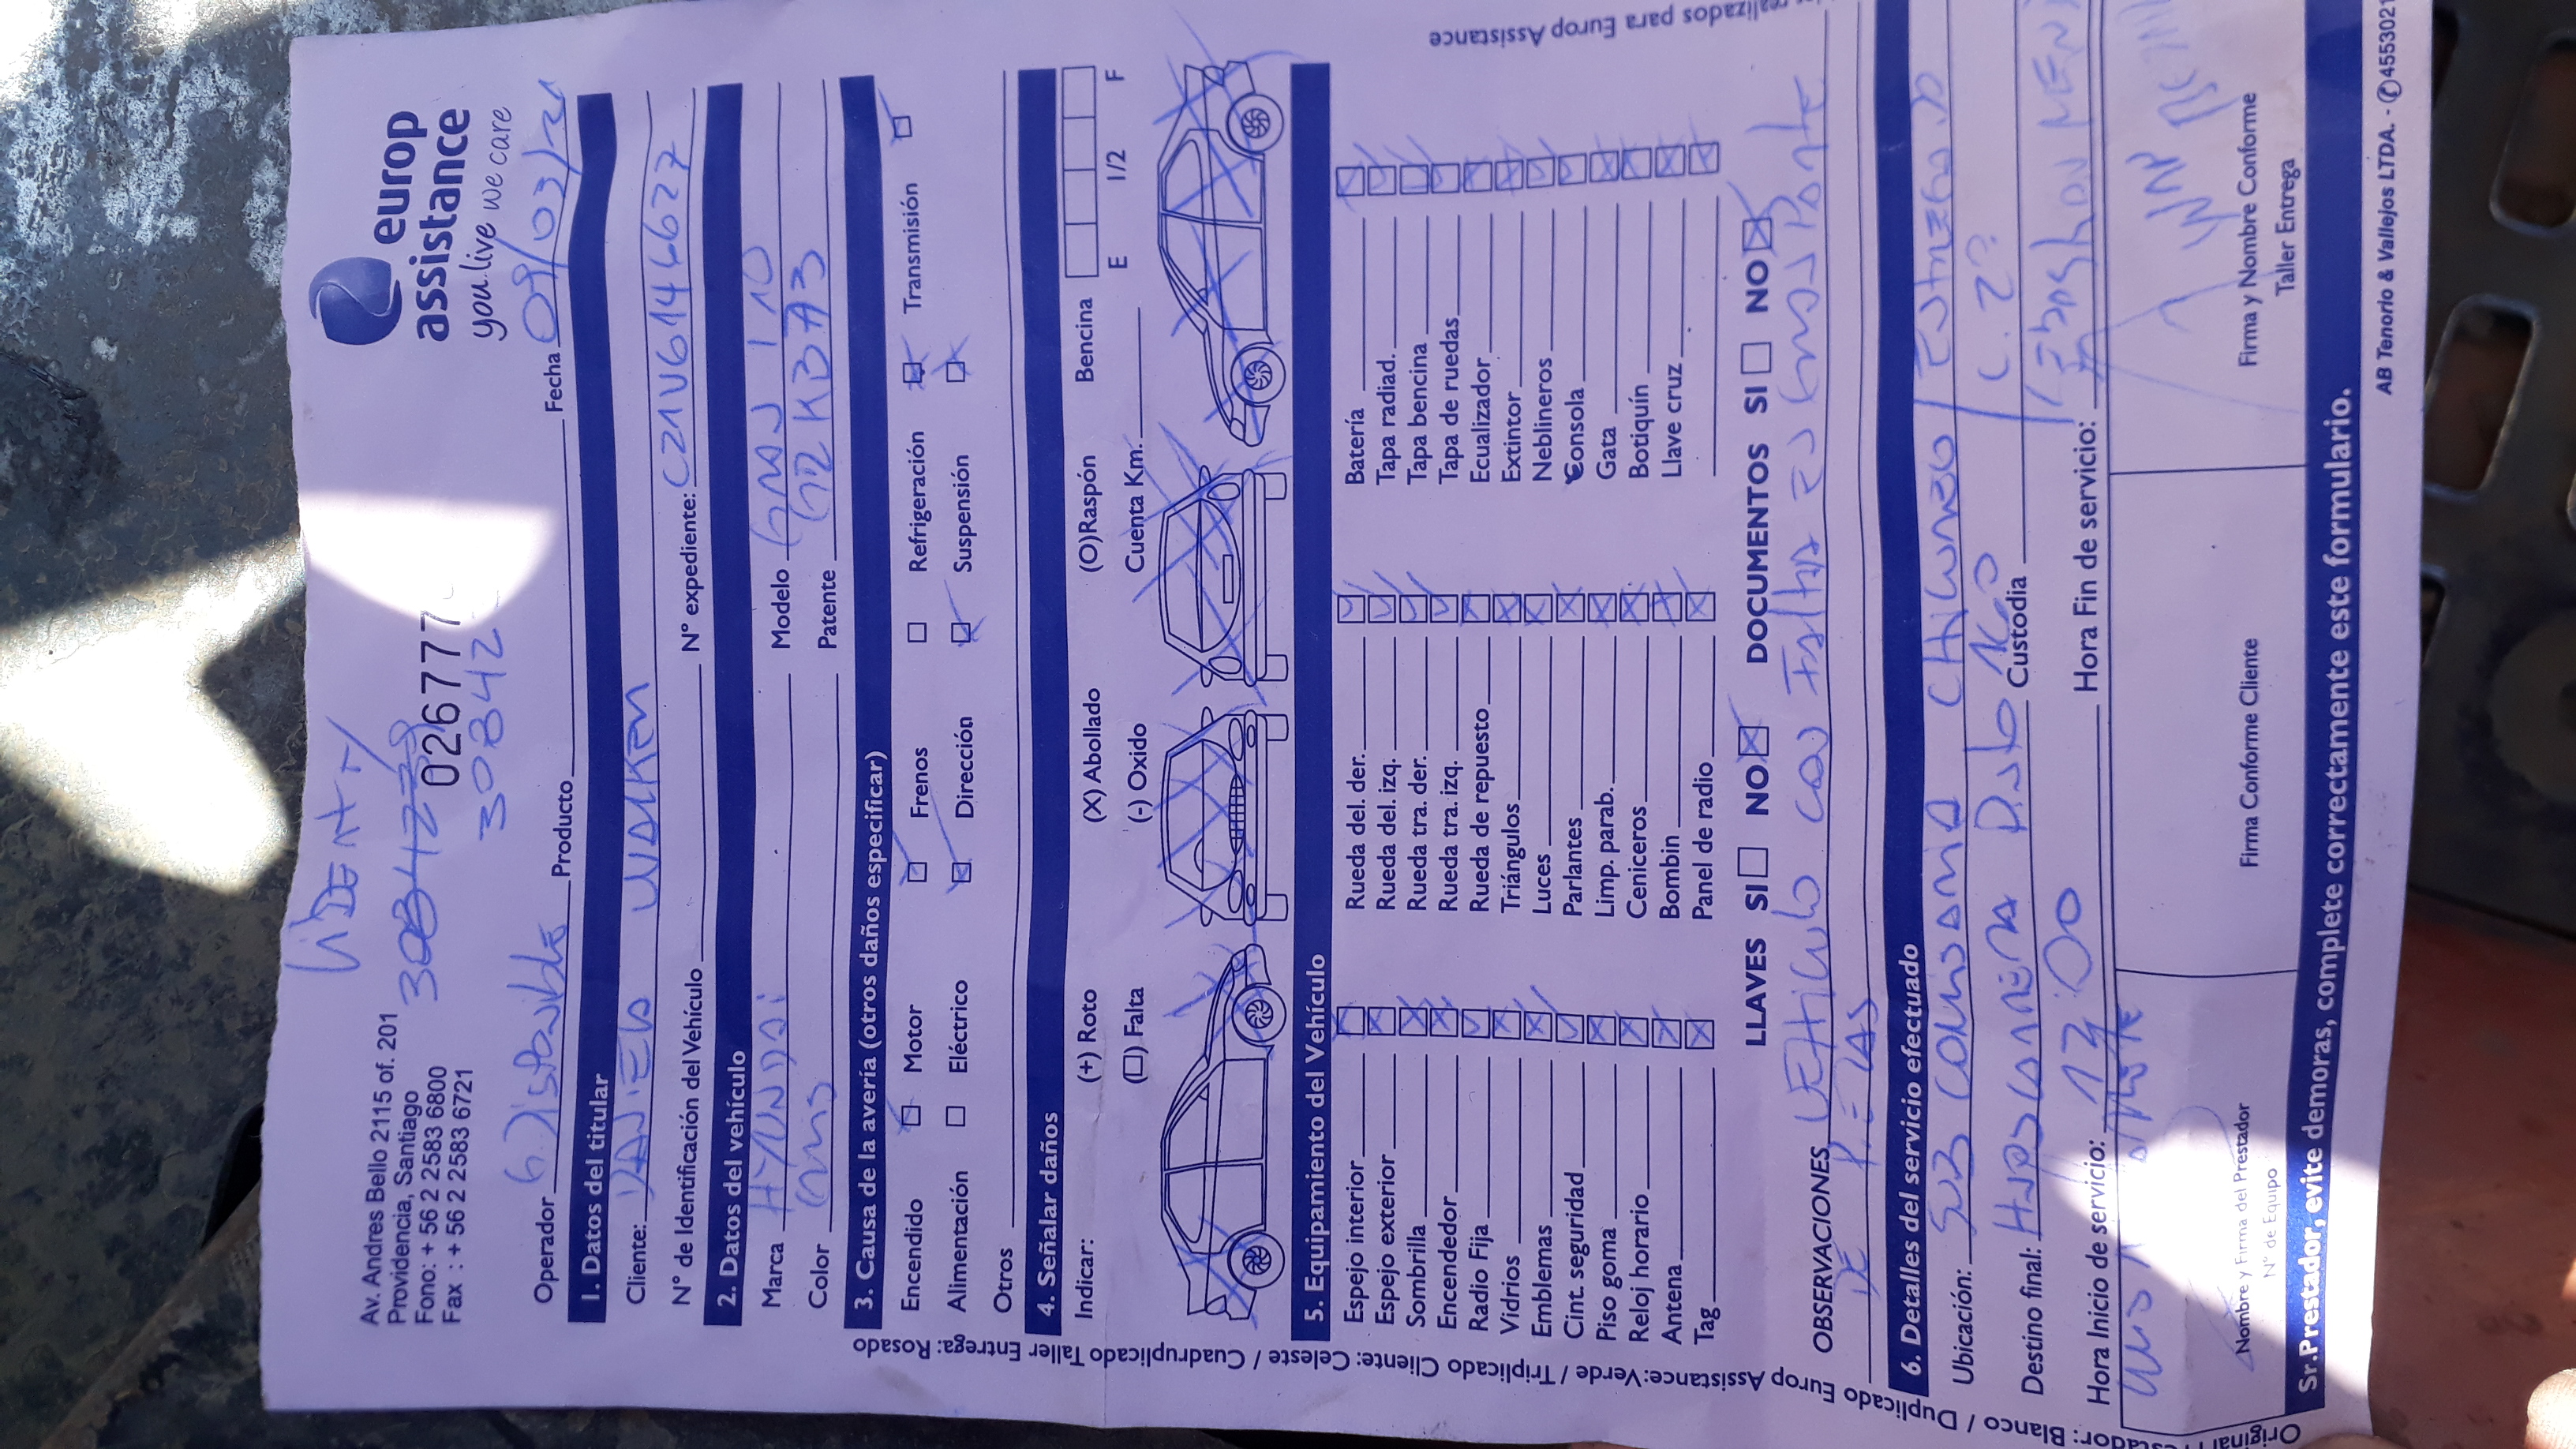 Av. Andres Bello 2115 of. 201
Providencia, Santiago
Fono: + 56 2 2583 6800
Fax : + 56 2 2583 6721
europ
assistance
you live we care
026777
30842
Operador Producto Fecha 09/03/21
1. Datos del titular
Cliente: DANIELO WALKER
N° de Identificación del Vehículo N° expediente: C21V61446627
2. Datos del vehículo
Marca HYUNDAI Modelo GRAN I 10
Color GRIS Patente
3. Causa de la avería (otros daños especificar)
Encendido Motor Frenos Refrigeración Transmisión
Alimentación Eléctrico Dirección Suspensión
Otros
4. Señalar daños
Indicar: (+) Roto (X) Abollado (O)Raspón Bencina E 1/2 F
(□) Falta (-) Oxido Cuenta Km.
5. Equipamiento del Vehículo
Espejo interior Rueda del. der. Batería
Espejo exterior Rueda del. izq. Tapa radiad.
Sombrilla Rueda tra. der. Tapa bencina
Encendedor Rueda tra. izq. Tapa de ruedas
Radio Fija Rueda de repuesto Ecualizador
Vidrios Triángulos Extintor
Emblemas Luces Neblineros
Cint. seguridad Parlantes Consola
Piso goma Limp. parab. Gata
Reloj horario Ceniceros Botiquín
Antena Bombin Llave cruz
Tag Panel de radio
LLAVES SI NO DOCUMENTOS SI NO
OBSERVACIONES VEHICULO CON FALTA ES GRAS PARTE
DE PIEZAS
6. Detalles del servicio efectuado
Ubicación: SUB COMISARIA CHICUREO
Destino final: Custodia
Hora Inicio de servicio: 12:00 Hora Fin de servicio:
Nombre y Firma del Prestador
N° de Equipo
Firma Conforme Cliente
Firma y Nombre Conforme
Taller Entrega
Sr.Prestador, evite demoras, complete correctamente este formulario.
AB Tenorio & Vallejos LTDA. - ✆4553021
Blanco / Duplicado Europ Assistance:Verde / Triplicado Cliente: Celeste / Cuadruplicado Taller Entrega: Rosado
realizados para Europ Assistance